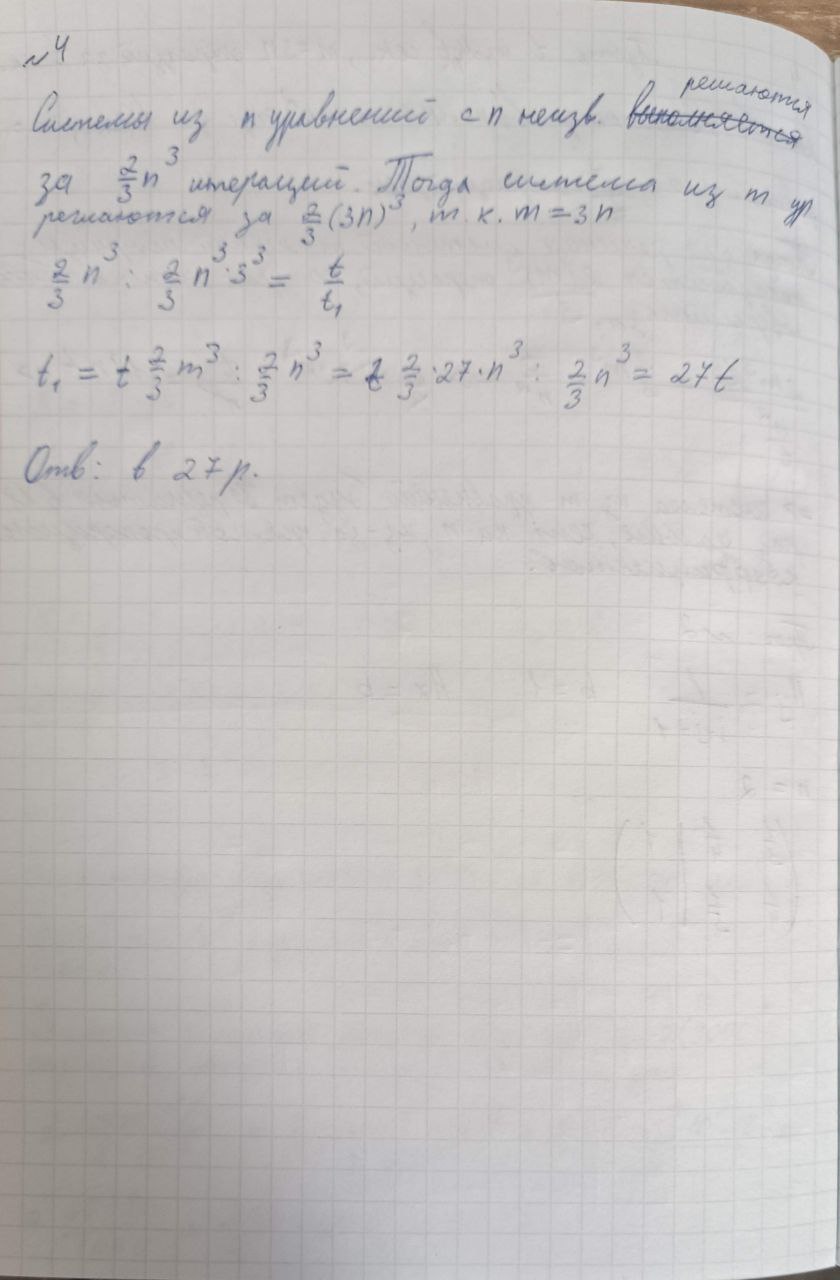 №4
решаются
Системы из n уравнений с n неизв. выполняется
за 2/3 n³ итераций. Тогда система из m ур
решаются за 2/3 (3n)³, т.к. m = 3n
2/3 n³ : 2/3 n³·3³ = t/t₁
t₁ = t 2/3 m³ : 2/3 n³ = t 2/3 ·27·n³ : 2/3 n³ = 27t
Отв: в 27 р.